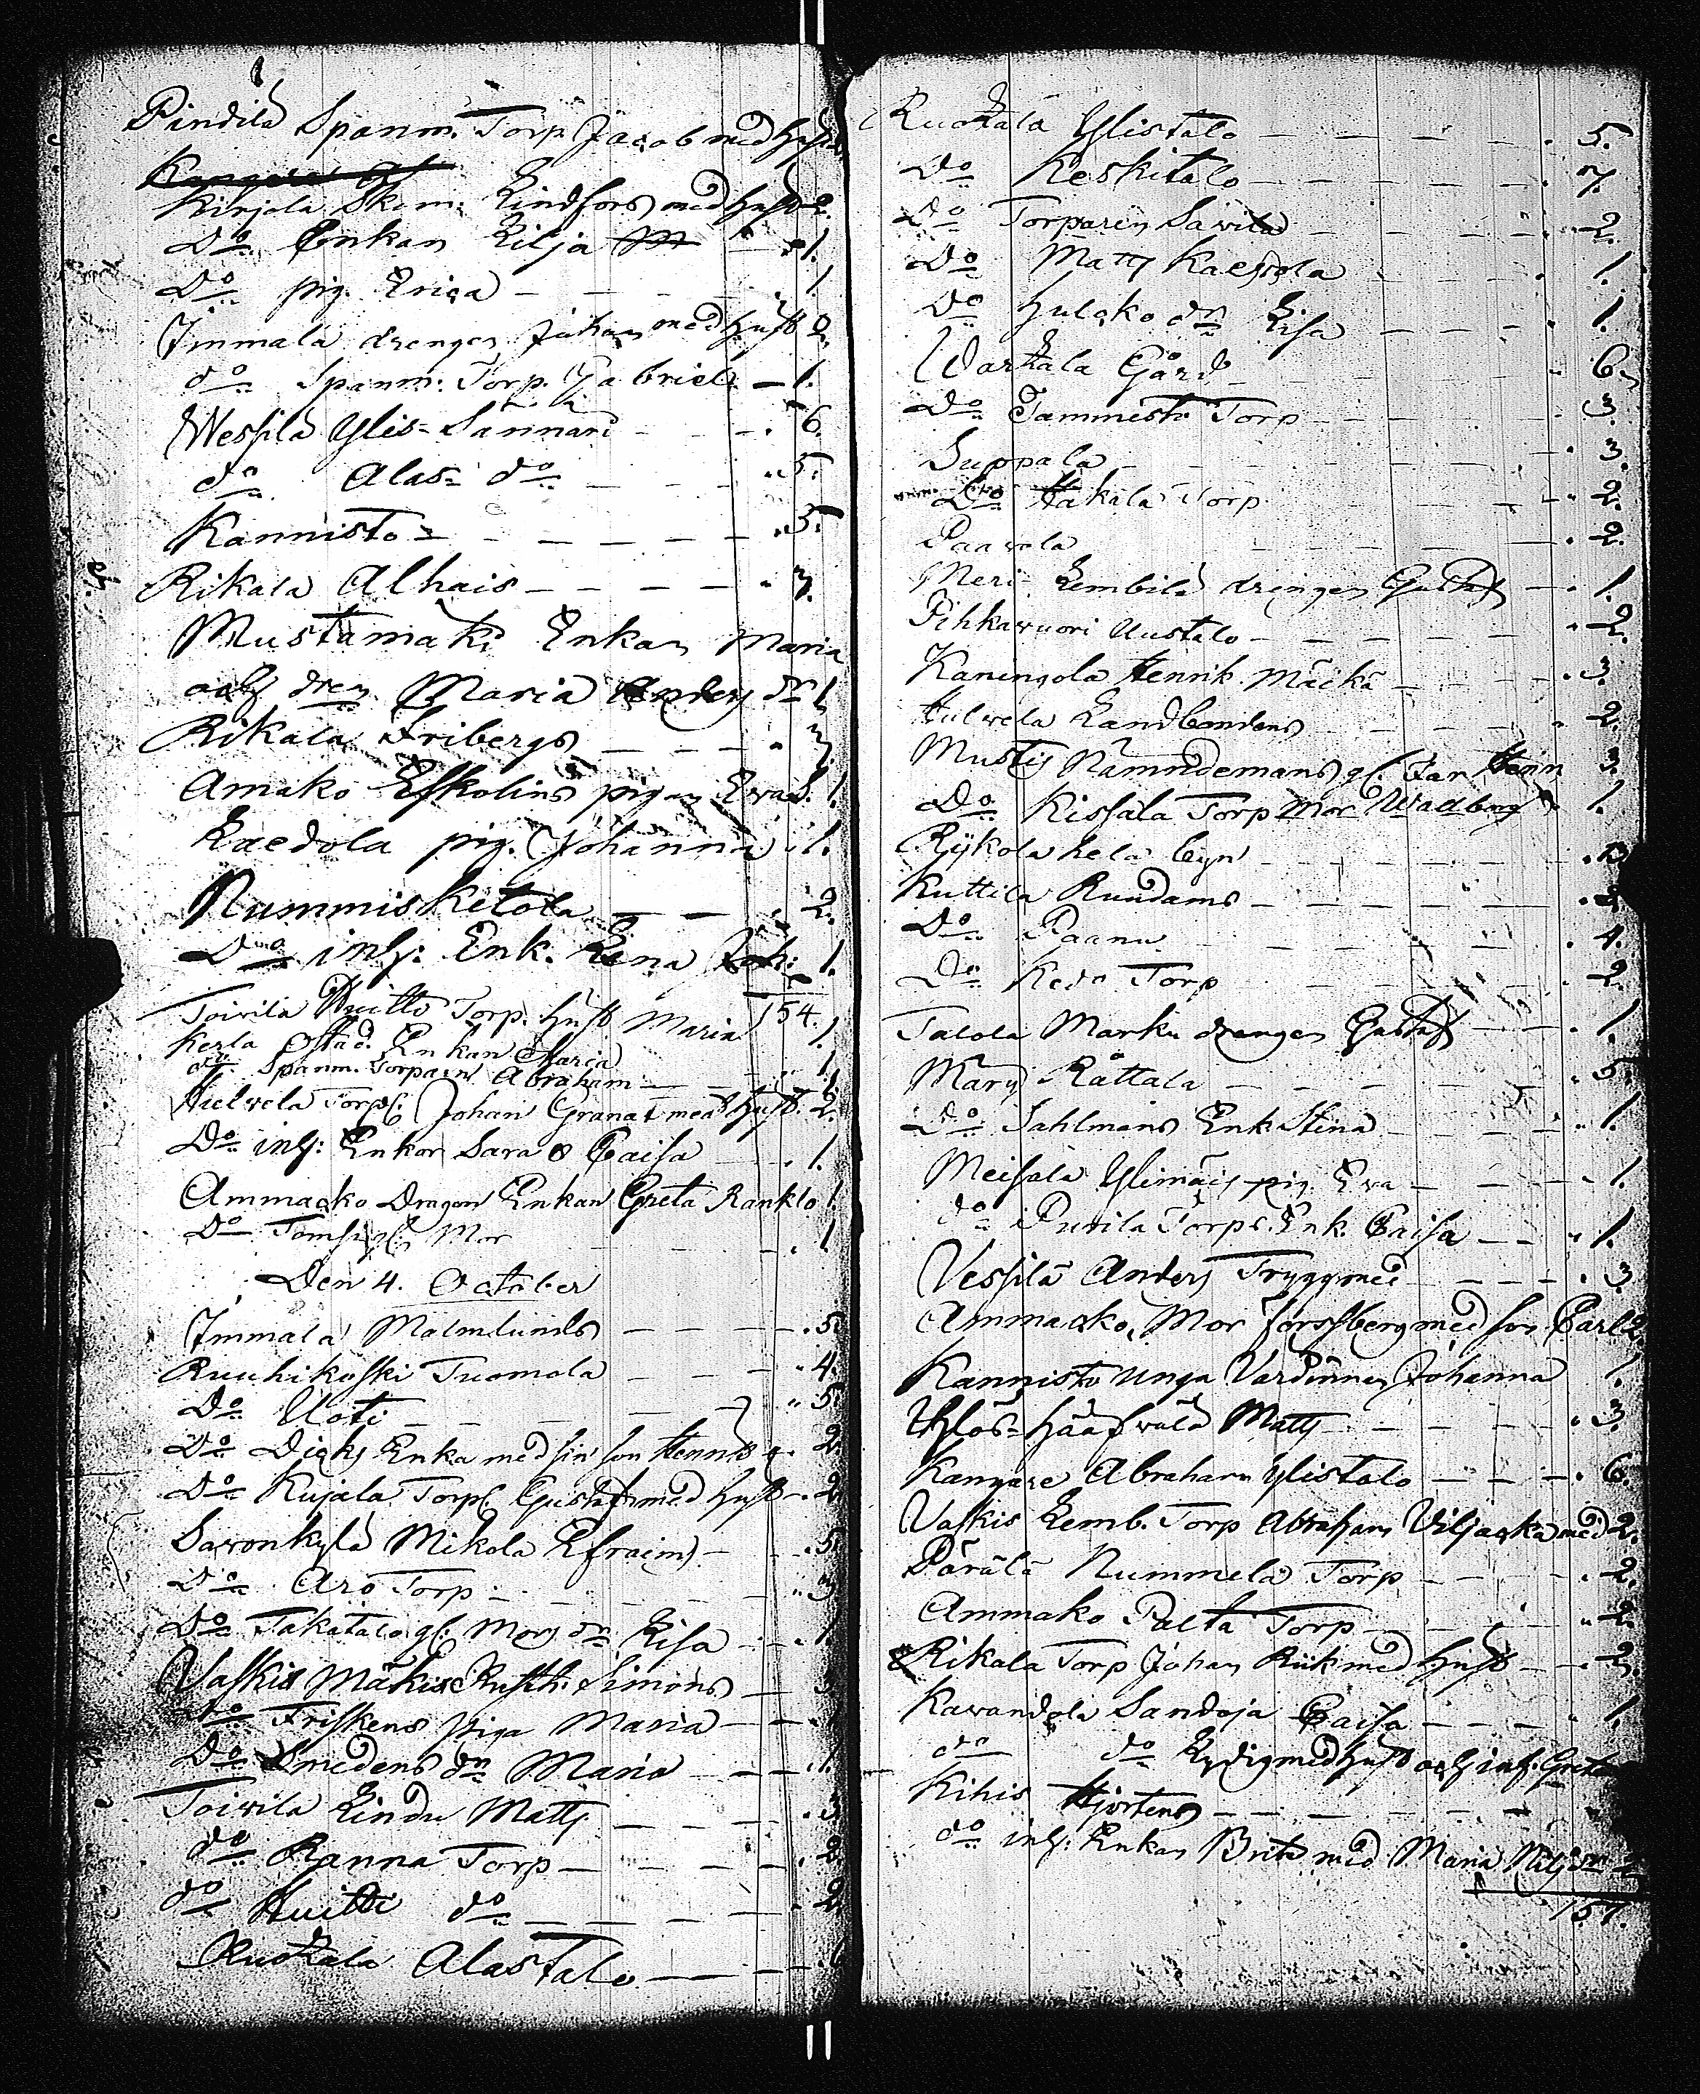 Pindilä Spanm. Torp. Jacob med hust
Kirjola Skom: Lindfors med hust 2.
Do Enkan Lilja 1.
Do pig. Erica 1
Immala drengen Johan med hust 2.
do Spanm: Torp. Gabriel 1.
Wessilä Ylis-Sännäri 6.
do Alas- do 5.
Kannisto 5.
Rikala Alhais 7.
Mustamäki Enkan Maria
och dren Maria Anders dr 1
Rikala Fribergs
Amako Eskolins pigan Eva 1.
Laedola pig. Johanna 1.
Nummis Ketola 2.
Do inh: Enk. Lena Joh: 1.
154.
Toivila Huitto Torp. hust Maria 1
Kerla Enkan Maria 1
do Spanm. Torparen Abraham 1
Hulvela Torp. Johan Granat med hust. 2.
Do inh: Enkor Sara & Caisa 1.
Ammacko Dragon Enkan Greta Ranklo 1.
Do Mor 1
Den 4. October
Immala Malmlunds 5.
Ruuhikoski Tuomola 4.
Do Uoti 5
Do Enka med sin son Henrik 2.
Do Kujala Torp. Gustaf med hust 2
Savonkylä Mikola Efraims 5
Do Aro Torp 3
Do Takatalo gl: Mor dr Lisa 1.
Vaskis Mäkis Simons 3
Do Friskens piga Maria
Do Smedens dr Maria 1.
Toivila Lindu Matts 3
do Ranna Torp 2
do Huitti do 2
Ruokala Alastalo
Ruokala Ylistalo 5.
Do Keskitalo 7.
Do Torparen Savila 2.
Do Matts Kaessola 1.
Do Hulcko dr Lisa 1.
Warkala Gård 6
Do Tammisto Torp 3.
Suppala 3.
Do Hakala Torp 2.
Paavola 2.
Meri-Lembilä drengen Gustaf 1.
Pihkavuori Uustalo 2.
Kaningola Henrik Mäckä 3.
Hulvela Landbondens 2.
Mustis Nämndemans gl. Far Henr 3.
Do Kissala Torp Mor Wadberg 1.
Rÿkola hela byn
Kuttila Rundams
Do Paanu 4.
Do Kedo Torp 2.
Talola Marku drengen Gustaf 1.
Märy Rättälä 5.
Do Sahlmans Enk Stina 1.
Meisala Ylimäis pig. Eva 1.
do Purila Torp. Enk. Caisa 1.
Vessilä Anders Tryggmed 3
Ammacko, Mor Forssberg med son Carl 2
Kannisto unga Värdinnan Johanna 1.
Ylös-Hääfwälä Matts 3.
Kangare Abraham Ylistalo 6.
Vaskis Lemb. Torp Abraham Viljacka med 2.
Pärälä Nummela Torp 2.
Ammako Palta Torp 2.
Rikala Torp Johan Rük med hust 2.
Kavandola Sandoja Caisa 1.
do do Lydig med hust och inh: Greta
Kihis Hjortens
do inh: Enkan Brita med Maria
157.